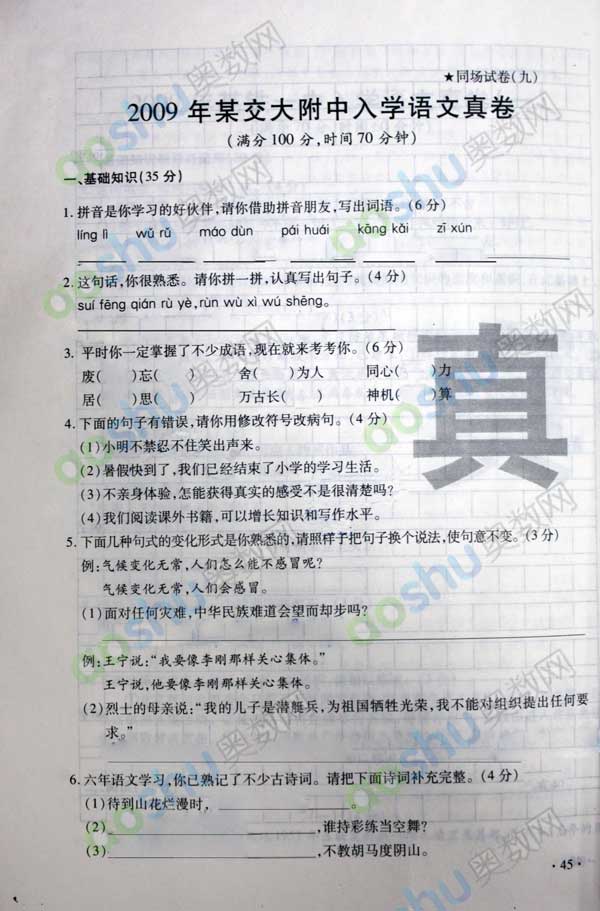 ★同场试卷(九)
2009 年某交大附中入学语文真卷
(满分100分,时间70分钟)
一、基础知识(35分)
1. 拼音是你学习的好伙伴,请你借助拼音朋友,写出词语。(6分)
líng lì wǔ rǔ máo dùn pái huái kāng kǎi zī xún
2. 这句话,你很熟悉。请你拼一拼,认真写出句子。(4分)
suí fēng qián rù yè, rùn wù xì wú shēng。
3. 平时你一定掌握了不少成语,现在就来考考你。(6分)
废( )忘( ) 舍( )为人 同心( )力
居( )思( ) 万古长( ) 神机( )算
4. 下面的句子有错误,请你用修改符号改病句。(4分)
(1)小明不禁忍不住笑出声来。
(2)暑假快到了,我们已经结束了小学的学习生活。
(3)不亲身体验,怎能获得真实的感受不是很清楚吗?
(4)我们阅读课外书籍,可以增长知识和写作水平。
5. 下面几种句式的变化形式是你熟悉的,请照样子把句子换个说法,使句意不变。(3分)
例:气候变化无常,人们怎么能不感冒呢?
气候变化无常,人们会感冒。
(1)面对任何灾难,中华民族难道会望而却步吗?
例:王宁说:“我要像李刚那样关心集体。”
王宁说,他要像李刚那样关心集体。
(2)烈士的母亲说:“我的儿子是潜艇兵,为祖国牺牲光荣,我不能对组织提出任何要
求。”
6. 六年语文学习,你已熟记了不少古诗词。请把下面诗词补充完整。(4分)
(1)待到山花烂漫时,____________。
(2)____________,谁持彩练当空舞?
(3)____________,不教胡马度阴山。
· 45 ·
真
aoshu奥数网